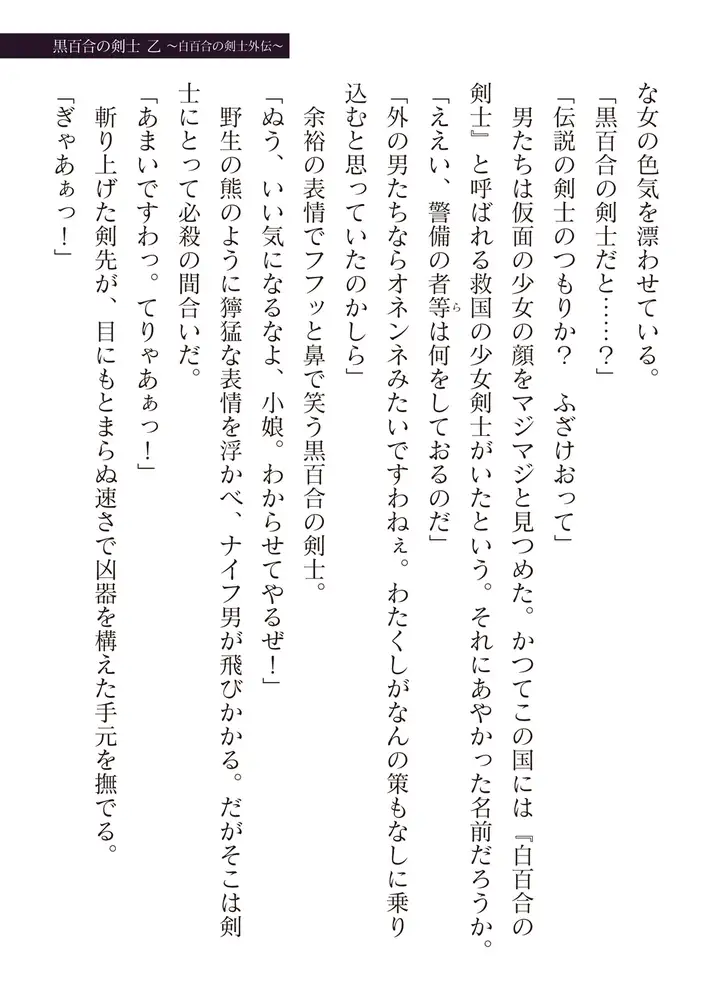 黒百合の剣士 乙 ～白百合の剣士外伝～
な女の色気を漂わせている。
「黒百合の剣士だと……？」
「伝説の剣士のつもりか？　ふざけおって」
　男たちは仮面の少女の顔をマジマジと見つめた。かつてこの国には『白百合の
剣士』と呼ばれる救国の少女剣士がいたという。それにあやかった名前だろうか。
「ええい、警備の者等らは何をしておるのだ」
「外の男たちならオネンネみたいですわねぇ。わたくしがなんの策もなしに乗り
込むと思っていたのかしら」
　余裕の表情でフフッと鼻で笑う黒百合の剣士。
「ぬう、いい気になるなよ、小娘。わからせてやるぜ！」
　野生の熊のように獰猛な表情を浮かべ、ナイフ男が飛びかかる。だがそこは剣
士にとって必殺の間合いだ。
「あまいですわっ。てりゃあぁっ！」
　斬り上げた剣先が、目にもとまらぬ速さで凶器を構えた手元を撫でる。
「ぎゃあぁっ！」